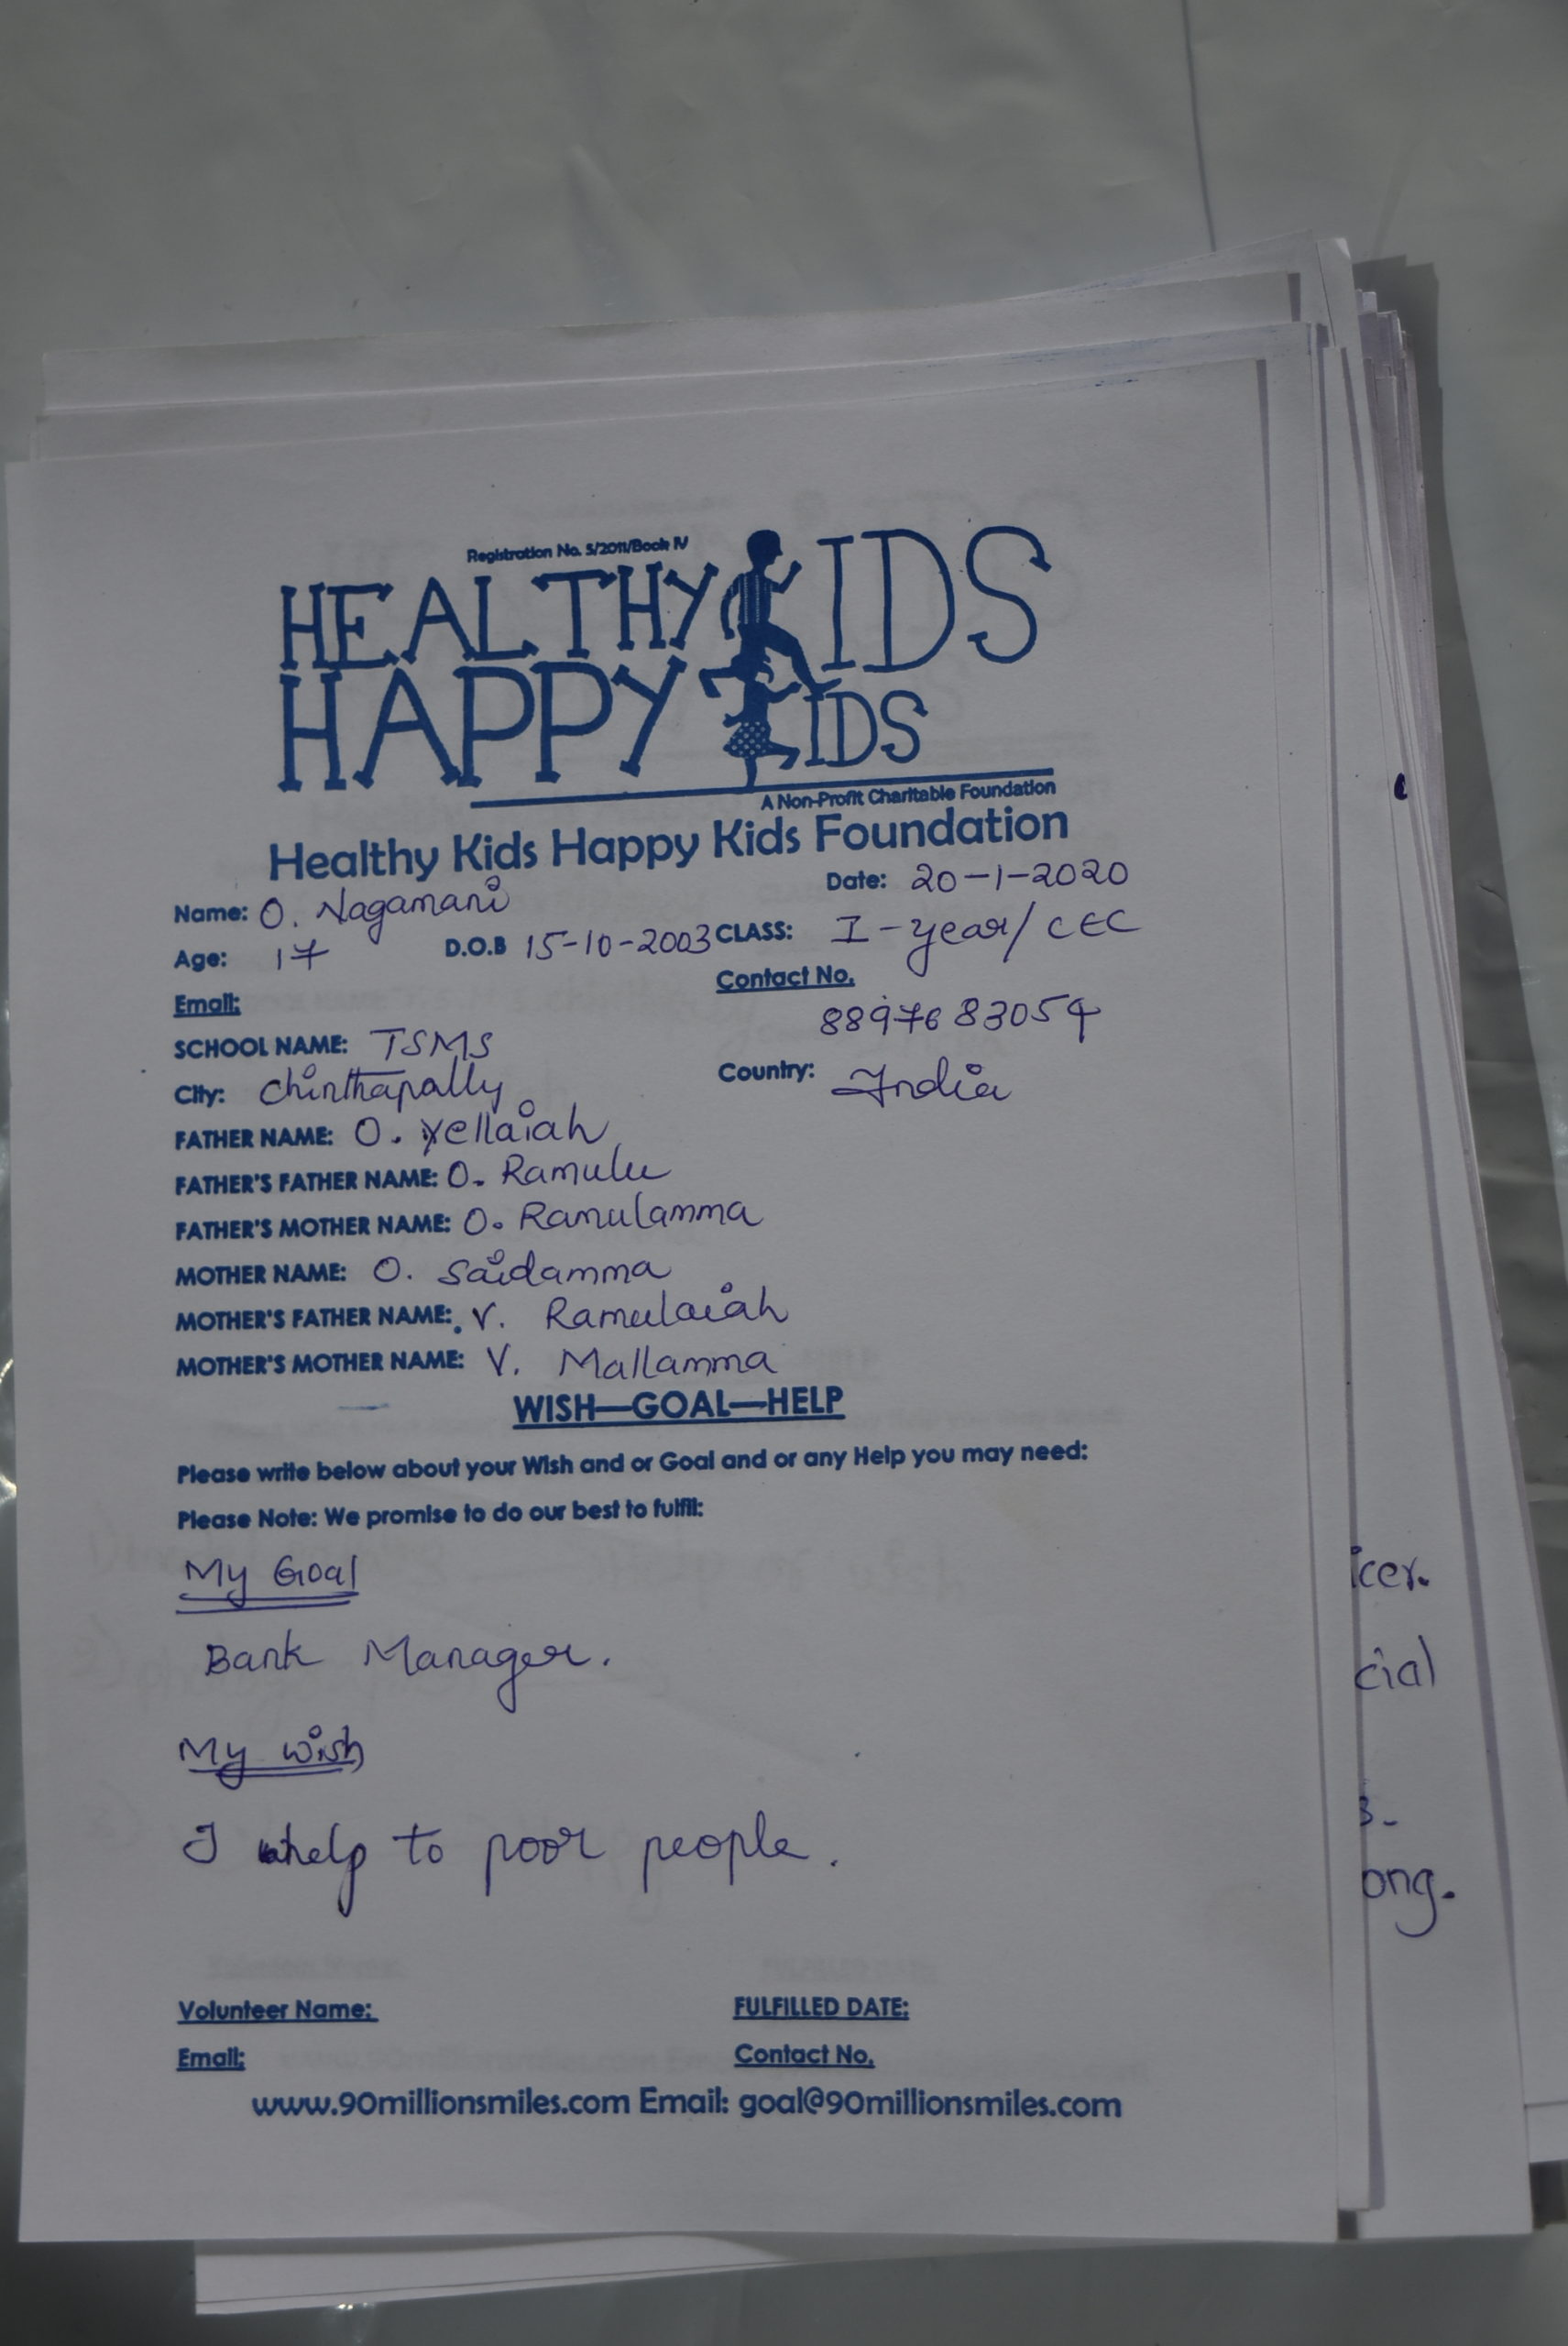 Registration No. 5/2011/Book IV
HEALTHY KIDS
HAPPY KIDS
A Non-Profit Charitable Foundation
Healthy Kids Happy Kids Foundation
Date: 20-1-2020
Name: O. Nagamani
Age: 17 D.O.B 15-10-2003 CLASS: I-year/CEC
Email: Contact No.
8897683054
SCHOOL NAME: TSMS
City: Chinthapally Country: India
FATHER NAME: O. Yellaiah
FATHER'S FATHER NAME: O. Ramulu
FATHER'S MOTHER NAME: O. Ramulamma
MOTHER NAME: O. Saidamma
MOTHER'S FATHER NAME: V. Ramulaiah
MOTHER'S MOTHER NAME: V. Mallamma
WISH—GOAL—HELP
Please write below about your Wish and or Goal and or any Help you may need:
Please Note: We promise to do our best to fulfil:
My Goal
Bank Manager.
My wish
I help to poor people.
icer.
cial
s.
ong.
Volunteer Name: FULFILLED DATE:
Email: Contact No.
www.90millionsmiles.com Email: goal@90millionsmiles.com